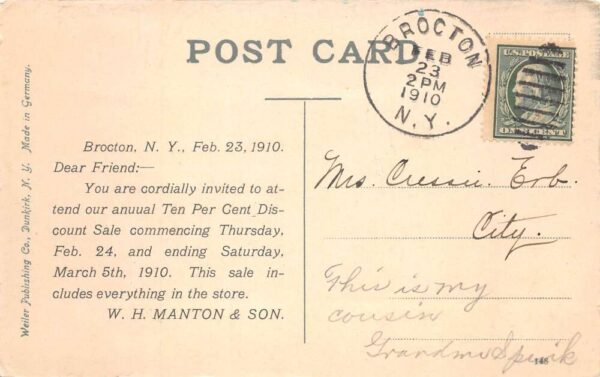 POST CARD
BROCTON
FEB
23
2 PM
1910
N.Y.
U.S. POSTAGE
ONE CENT
Weiler Publishing Co., Dunkirk, N. Y. Made in Germany.
Brocton, N. Y., Feb. 23, 1910.
Dear Friend:—
You are cordially invited to at-
tend our anuual Ten Per Cent Dis-
count Sale commencing Thursday,
Feb. 24, and ending Saturday,
March 5th, 1910. This sale in-
cludes everything in the store.
W. H. MANTON & SON.
Mrs. Cressie. Erb.
City.
This is my
cousin
Grandma Spink
148